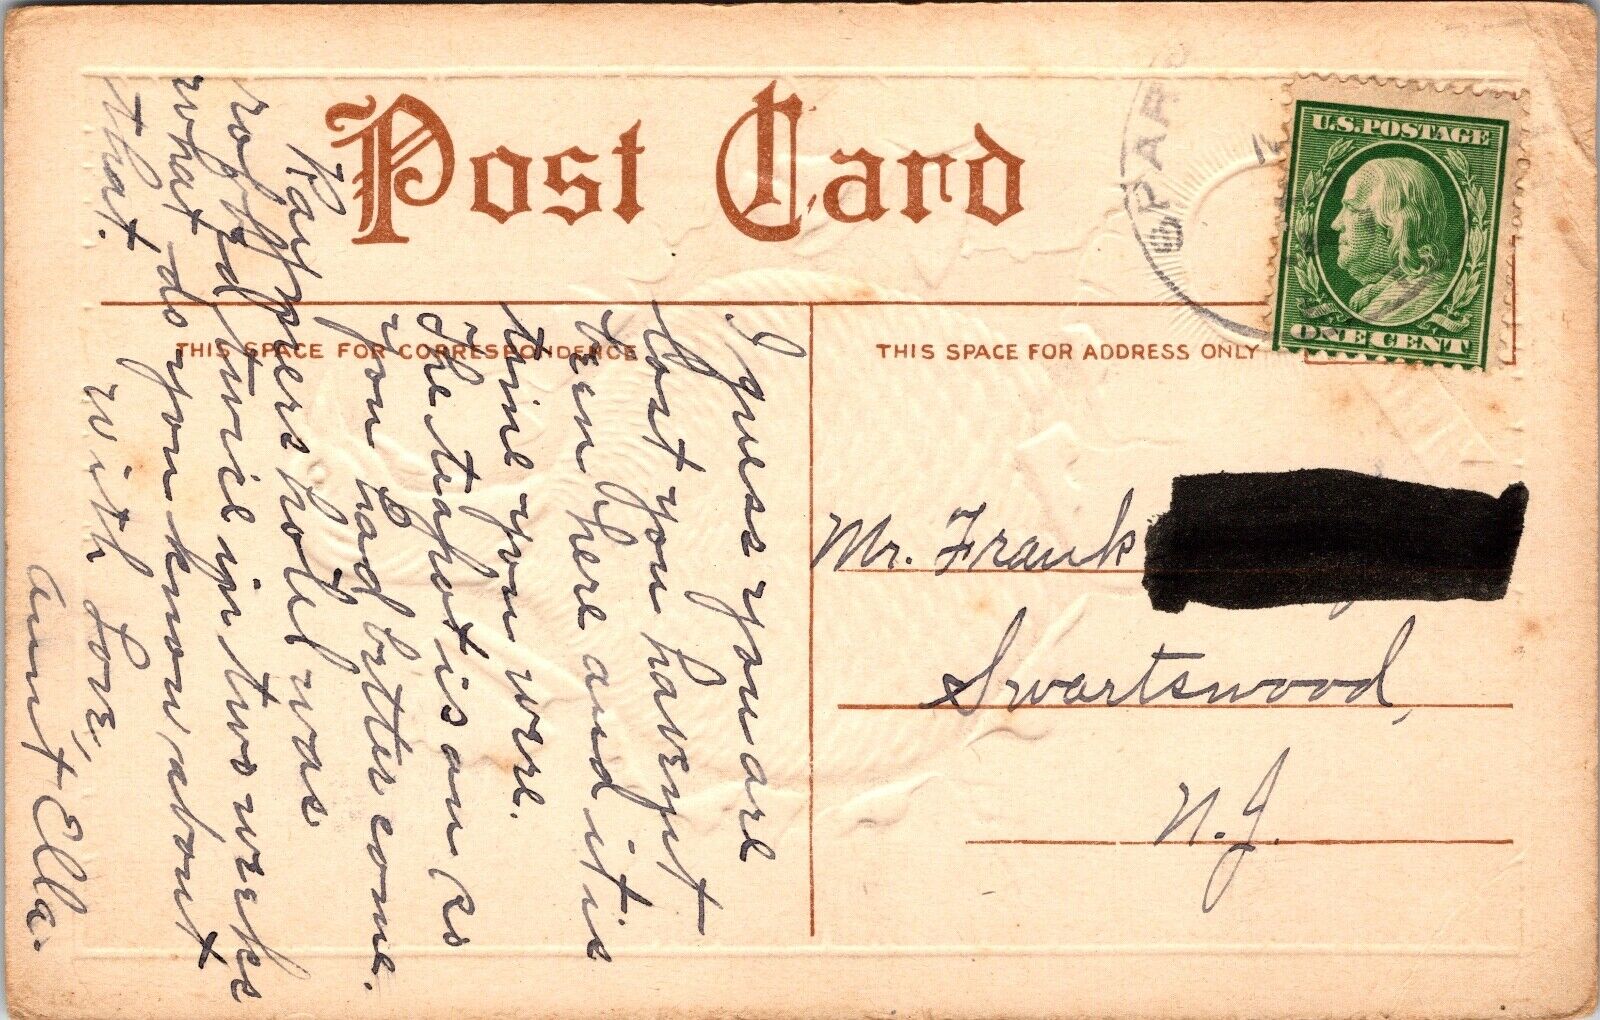 Post Card
SPAR
U.S. POSTAGE
ONE CENT
THIS SPACE FOR CORRESPONDENCE
THIS SPACE FOR ADDRESS ONLY
I guess you are
lost you havent
been here and it is
time you were.
The teapot is on so
you had better come.
Kaysers hotel was
robbed twice in two weeks
what do you know about
that.
with Love,
Aunt Ella.
Mr. Frank
Swartswood,
N.J.